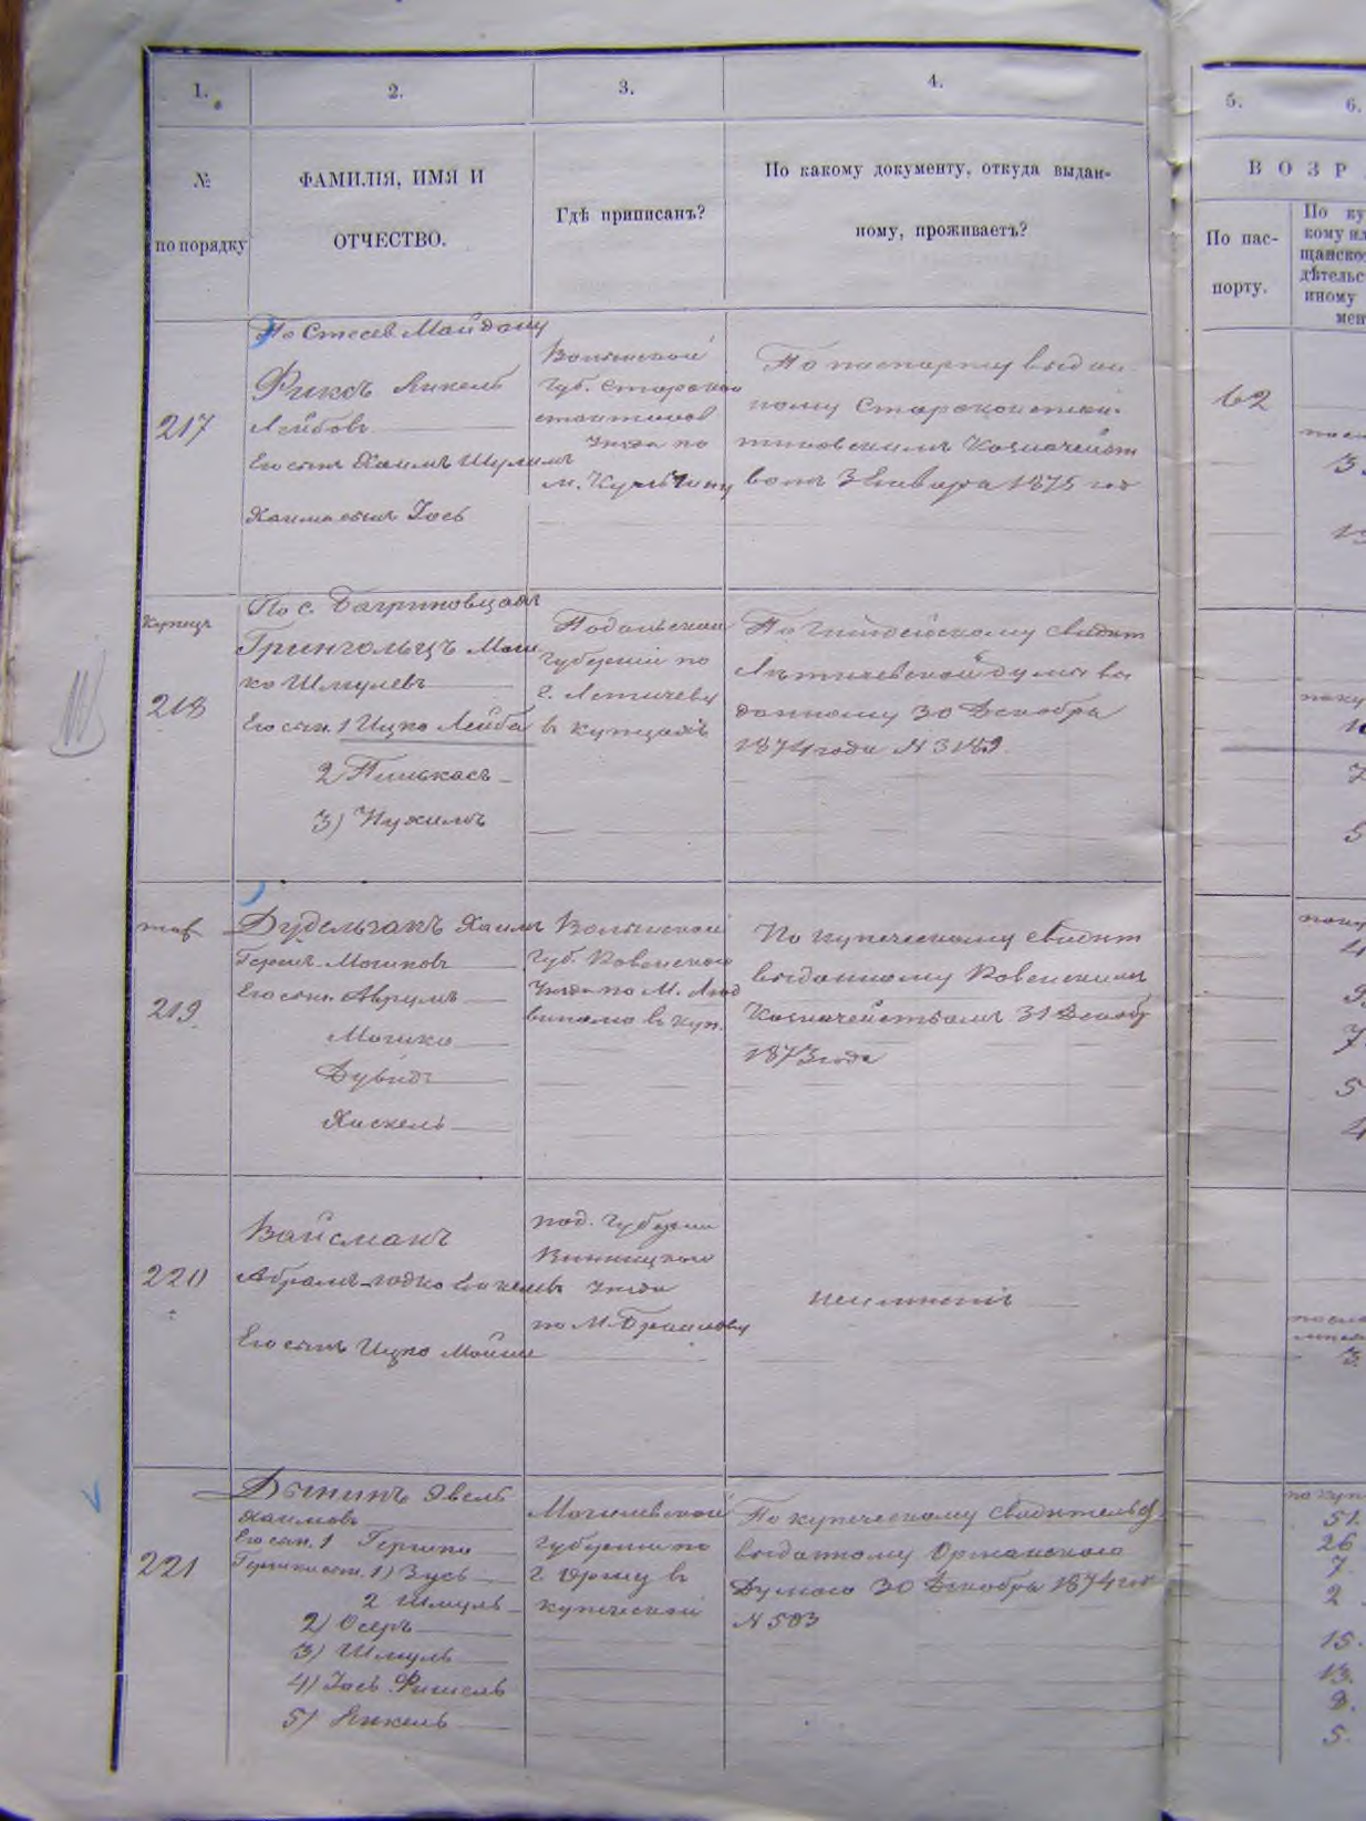 1.
2.
3.
4.
5.
6.
№
по порядку
ФАМИЛІЯ, ИМЯ И
ОТЧЕСТВО.
Гдѣ приписанъ?
По какому документу, откуда выдан-
ному, проживаетъ?
ВОЗР
По пас-
порту.
По ку
кому ил
щанско
дѣтельс
иному
мен
217
Фиксъ Янкель
Лейбовъ
Его сынъ Хаимъ Шулимъ
Хаима сынъ Іось
Волынской
Губ. Старокон
стантинов
Уѣзда по
м. Кульчину
По паспорту выдан-
ному Староконстан-
тиновскимъ Казначейст
вомъ 3 Января 1875 год
62
Купецъ
218
По с. Багриновцамъ
Грингольцъ Мош
ко Шмулевъ
Его сын. 1 Ицко Лейба
2 Пинькасъ
3) Нухимъ
Подольской
Губерніи по
г. Летичеву
в купцахъ
По Гильдейскому свидет
Лѣтичевской думы вы
данному 30 Декабря
1874 года N 3189
7
5
219
Дудельзакъ Хаимъ
Гершъ Мошковъ
Его сын. Аврумъ
Мошко
Дувидъ
Хаскель
Волынской
Губ. Ровенского
Уѣзда по М. Люд
виполю в куп.
По купеческому свидет
выданному Ровенскимъ
Казначействомъ 31 Декабр
1873 года
4
9
7
5
4
220
Вайсманъ
Абрамъ-Іодко Янкелевъ
Его сынъ Ицко Мойше
под. Губерніи
Винницкого
Уѣзда
по М. Браилову
неимѣніи
3
221
Дыкинъ Эвель
Хаимовъ
Его сын. 1 Гершко
Гершки сын. 1) Зусь
2 Шмуль
2) Осеръ
3) Шмуль
4) Іось Фишель
5) Янкель
Могилевской
Губерніи по
г. Оршу в
купеческой
По купеческому свидѣтельст
выданному Оршанского
Думою 30 Декабря 1874 год
N 503
51.
26
7.
2
15.
13.
8.
5.